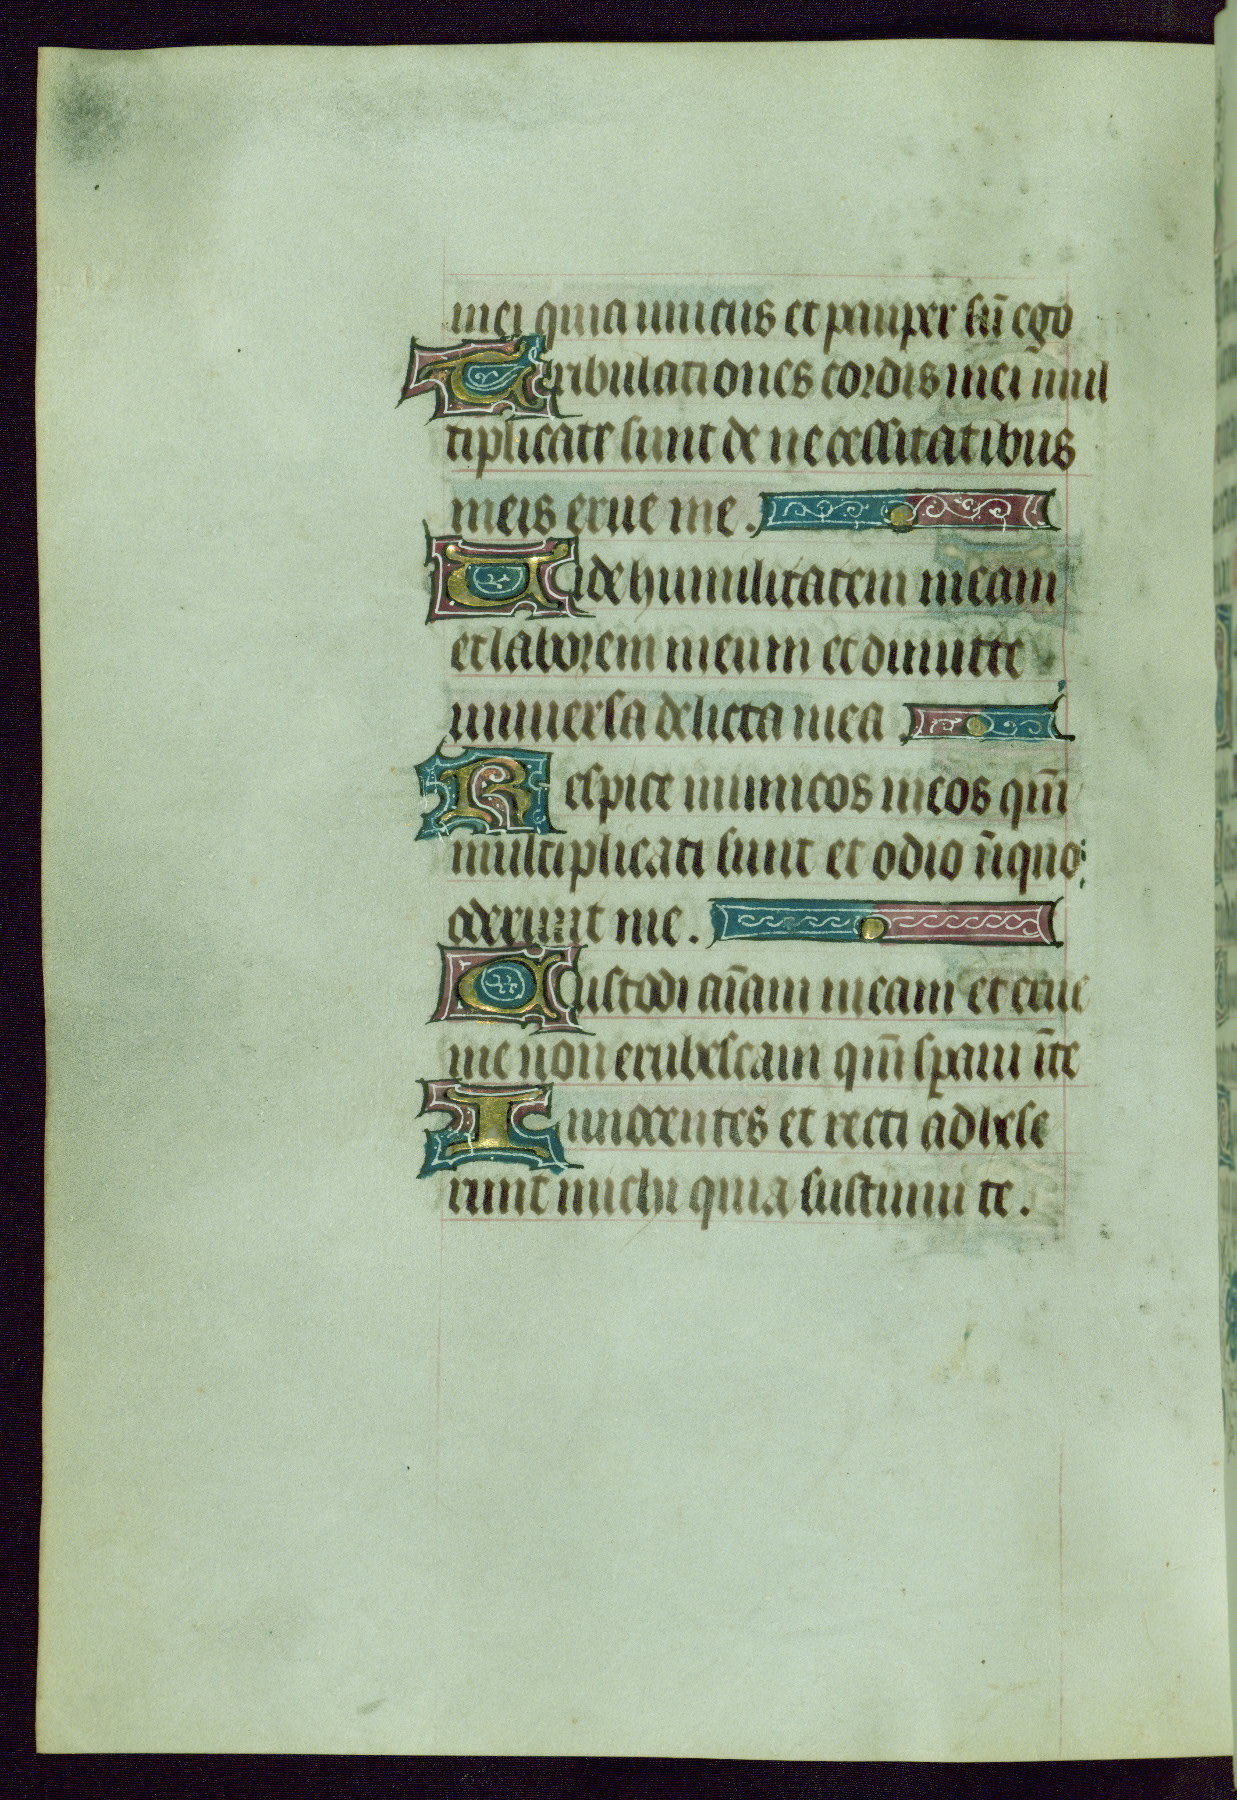 mei quia unicus et pauper sū ego
Tribulationes cordis mei mul
tiplicate sunt de necessitatibus
meis erue me.
Uide humilitatem meam
et laborem meum et dimitte
uniuersa delicta mea.
Respice inimicos meos qm̄
multiplicati sunt et odio iniquo
oderunt me.
Custodi aīam meam et erue
me non erubescam qm̄ speraui ī te
Innocentes et recti adhese
runt michi quia sustinui te.